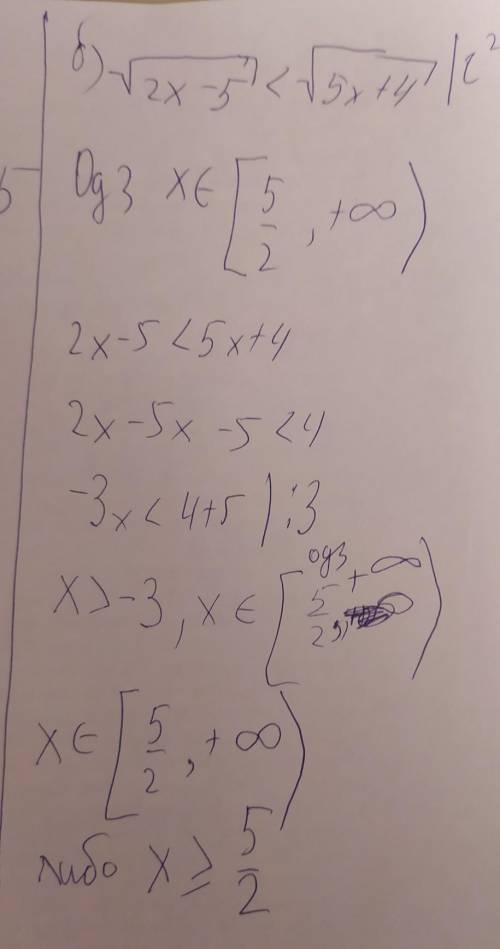 б) √(2x-5) < √(5x+4) |²
Одз x∈[5/2, +∞)
2x-5<5x+4
2x-5x-5<4
-3x<4+5 | :3
x>-3, x∈[5/2, +∞) одз
x∈[5/2, +∞)
либо x≥5/2